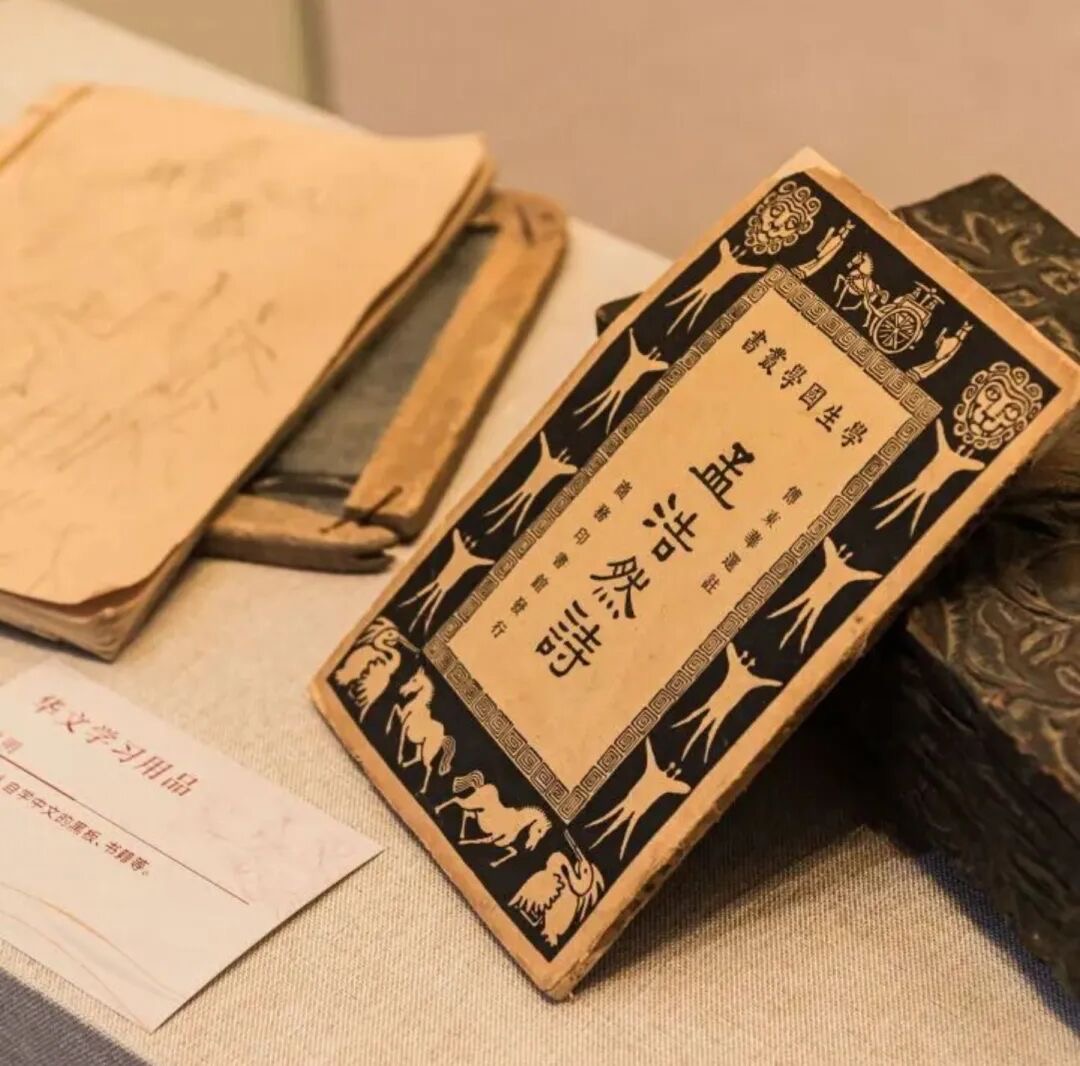 學生國學叢書
傅東華選註
孟浩然詩
商務印書館發行
华文学习用品
明
自学中文的黑板、书籍等。